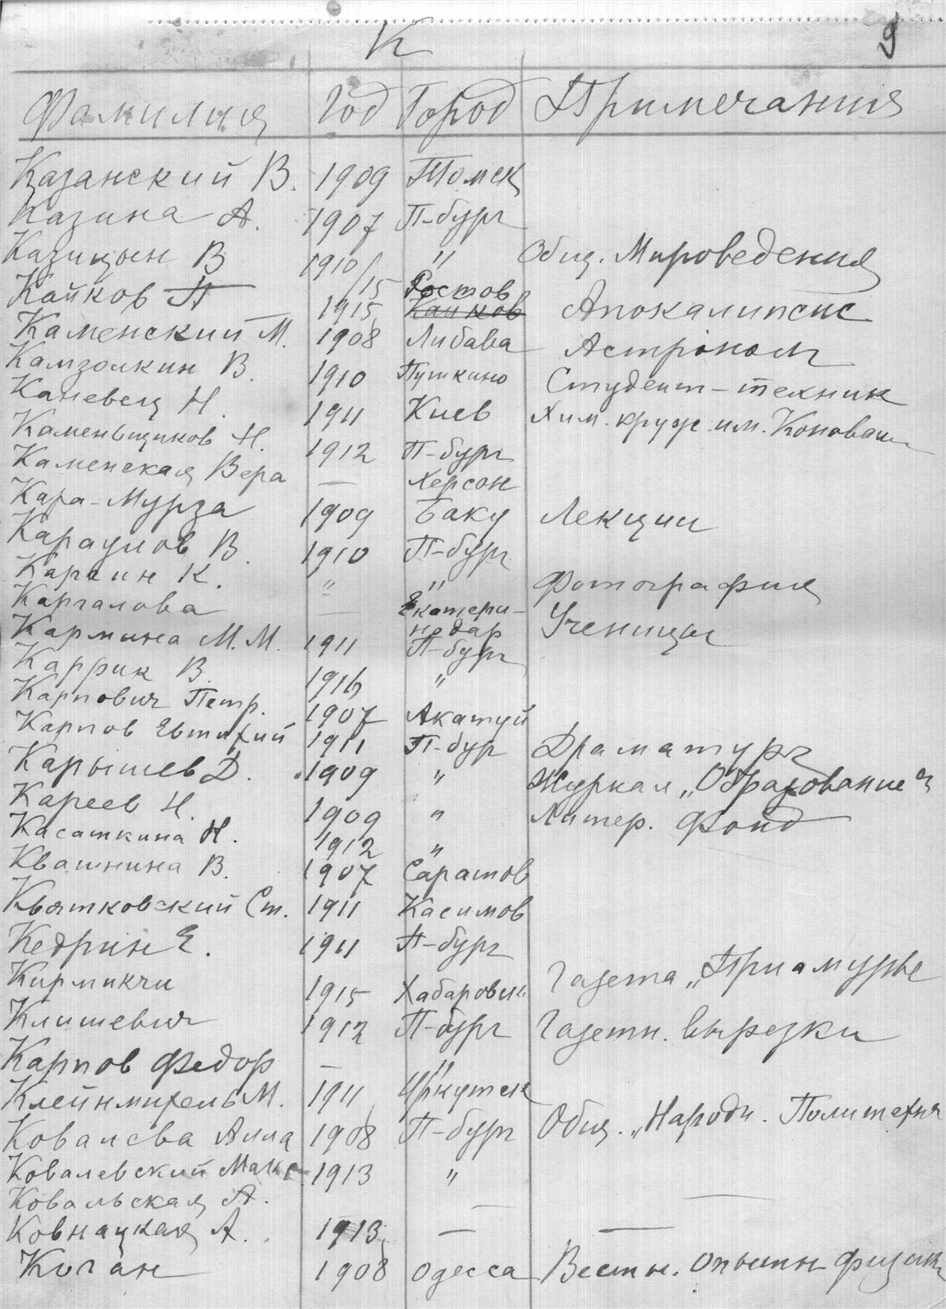 К 9
Фамилия Год Город Примечания
Казанский В. 1909 Томск
Казина А. 1907 П-бург
Казицын В 1910 " Общ. Мироведения
Кайков П 1915 15 Ростов Канков Апокалипсис
Каменский М. 1908 Либава Астроном
Камзолкин В. 1910 Пушкино Студент-техник
Каневец Н. 1911 Киев Хим. круж. им. Коновал
Каменьщиков Н. 1912 П-бург
Каменская Вера — Херсон
Кара-Мурза 1909 Баку Лекции
Караулов В. 1910 П-бург
К. " " Фотография
Каргалова — Екатери-
нодар Ученицы
Кармина М.М. 1911 П-бург
Каррик В. 1916 "
Карпович Петр. 1907 Акатуй
Карпов Евтихий 1911 П-бург Драматург
Карышев Д. 1909 " Журнал „Образование"
Кареев Н. 1909 " Литер. Фонд
Касаткина Н. 1912 "
Квашнина В. 1907 Саратов
Квятковский Ст. 1911 Касимов
Кедрин Е. 1911 П-бург
Кирмикчи 1915 Хабаровск Газета „Приамурье
Клишевич 1912 П-бург Газетн. вырезки
Карпов Федор — "
Клейнмихель М. 1911 Иркутск
Ковалева Анна 1908 П-бург Общ. „Народн. Политехн
Ковалевский Макс 1913 "
Ковальская А. — —
Ковнацкая А. 1913 — —
Коган 1908 Одесса Вестн. опытн физики